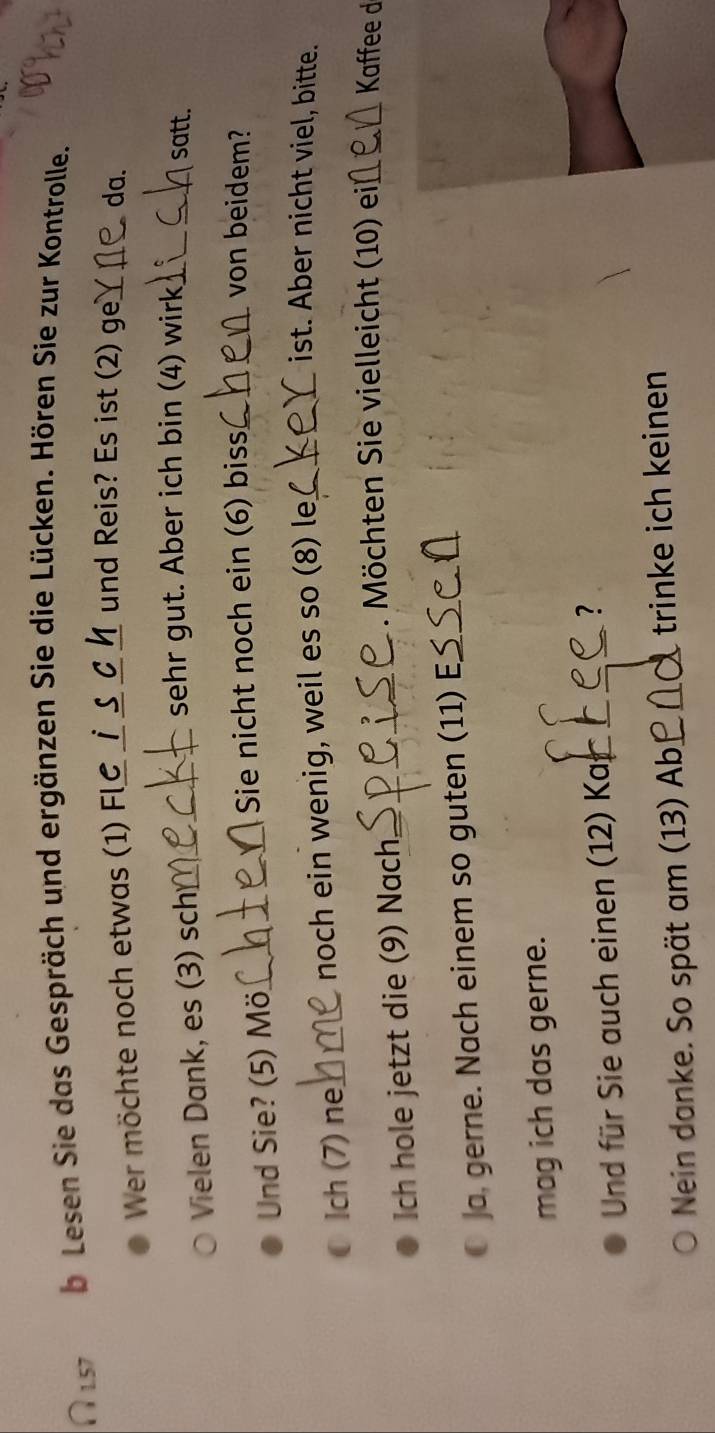 1.57 b Lesen Sie das Gespräch und ergänzen Sie die Lücken. Hören Sie zur Kontrolle.
Wer möchte noch etwas (1) Fleisch und Reis? Es ist (2) geyne da.
Vielen Dank, es (3) schmeckt sehr gut. Aber ich bin (4) wirklich satt.
Und Sie? (5) Möchten Sie nicht noch ein (6) bisschen von beidem?
Ich (7) nehme noch ein wenig, weil es so (8) lecker ist. Aber nicht viel, bitte.
Ich hole jetzt die (9) Nachspeise. Möchten Sie vielleicht (10) einen Kaffee d
Ja, gerne. Nach einem so guten (11) Essen
mag ich das gerne.
Und für Sie auch einen (12) Kaffee?
Nein danke. So spät am (13) Abend trinke ich keinen